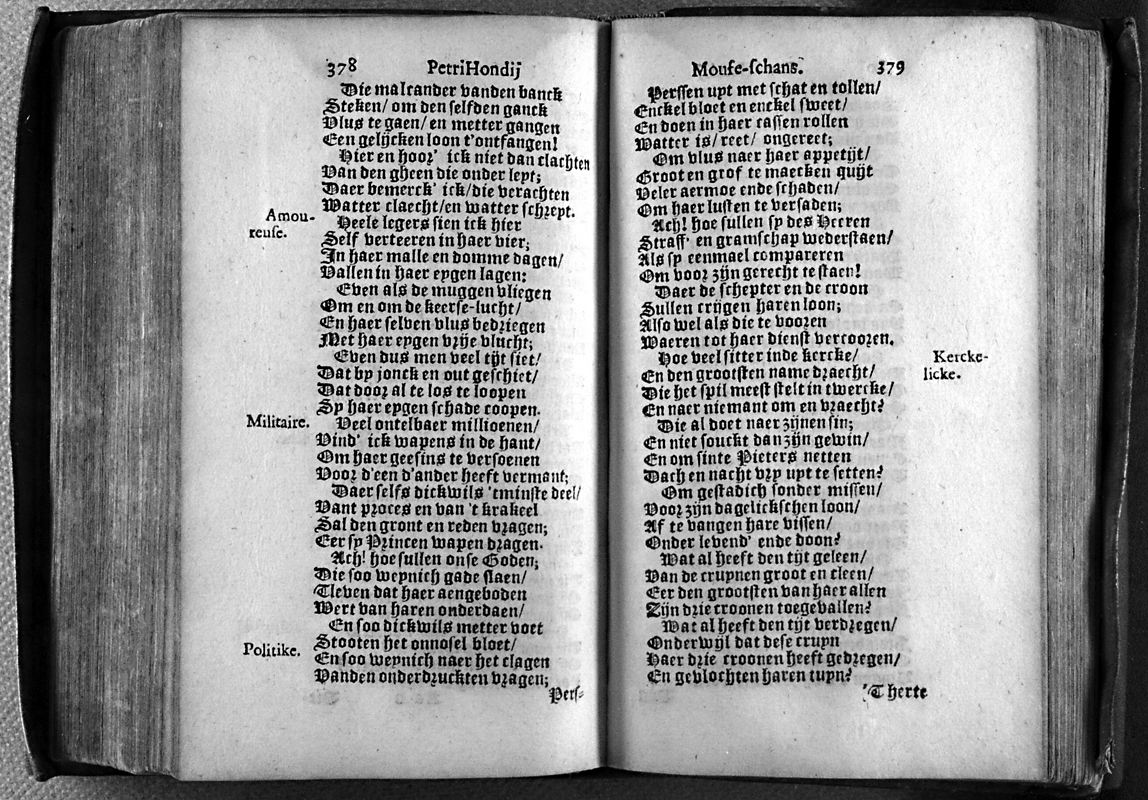 378 Petri Hondij
Die malcander vanden banck
Steken/ om den selfden ganck
Vlus te gaen/ en metter gangen
Een gelijcken loon t'ontfangen!
Hier en hoor' ick niet dan clachten
Van den gheen die onder lept;
Daer bemerck' ick/ die verachten
Watter claecht/ en watter schrept.
Amou-
reuse.
Heele legers sien ick hier
Self verteeren in haer vier;
In haer malle en domme dagen/
Vallen in haer eygen lagen:
Even als de muggen vliegen
Om en om de keerse-lucht/
En haer selven vlus bedriegen
Met haer eygen vrije vlucht;
Even dus men veel tijt siet/
Dat by jonck en out geschiet/
Dat door al te los te loopen
Sy haer eygen schade coopen.
Militaire.
Veel ontelbaer millioenen/
Vind' ick wapens in de hant/
Om haer geesins te versoenen
Voor d'een d'ander heeft vermant;
Daer selfs dickwils 'tminste deel/
Vant proces en van 't krakeel
Sal den gront en reden vragen;
Eer sy Princen wapen dragen.
Ach! hoe sullen onse Goden;
Die soo weynich gade slaen/
Tleven dat haer aengeboden
Wert van haren onderdaen/
En soo dickwils metter voet
Politike.
Stooten het onnosel bloet/
En soo weynich naer het clagen
Vanden onderdruckten vragen;
Pers-
Mouse-schans. 379
Perssen upt met schat en tollen/
Enckel bloet en enckel sweet/
En doen in haer cassen rollen
Watter is/ reet/ ongereet;
Om vlus naer haer appetijt/
Groot en grof te maecken quijt
Veler aermoe ende schaden/
Om haer lusten te versaden;
Ach! hoe sullen sy des Heeren
Straff' en gramschap wederstaen/
Als sy eenmael compareren
Om voor zijn gerecht te staen!
Daer de schepter en de croon
Sullen crijgen haren loon;
Also wel als die te vooren
Waeren tot haer dienst vercooren.
Kercke-
licke.
Hoe veel sitter inde kercke/
En den grootsten name draecht/
Die het spil meest stelt in twercke/
En naer niemant om en vraecht?
Die al doet naer zijnen sin;
En niet souckt dan zijn gewin/
En om sinte Pieters netten
Dach en nacht vry upt te setten?
Om gestadich sonder missen/
Voor zijn dagelickschen loon/
Af te vangen hare vissen/
Onder levend' ende doon?
Wat al heeft den tijt geleen/
Van de crupnen groot en cleen/
Eer den grootsten van haer allen
Zijn drie croonen toegevallen?
Wat al heeft den tijt verdregen/
Onderwijl dat dese crupn
Haer drie croonen heeft gedregen/
En gevlochten haren tupn?
'Therte